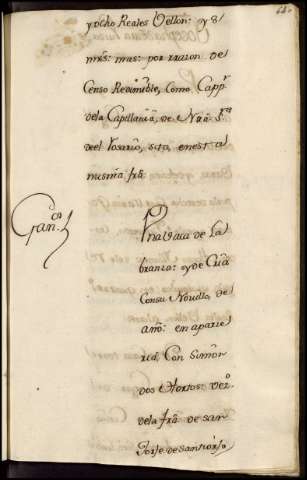 y ocho Reales Vellon: y 8
mrs: mas: por rrazon de
Censo Redimible, Como Capp.n
de la Capillania, de Ntra S.ra
del rosario, sita, en esta
misma frã:
Gan.os
Una Vaca de La
branza: y de Cria
Con su Novillo, de
año: en aparce
ria, Con Simon
dos Hortos: Vez.o
de la frã: de san
Jorse de santiorjo